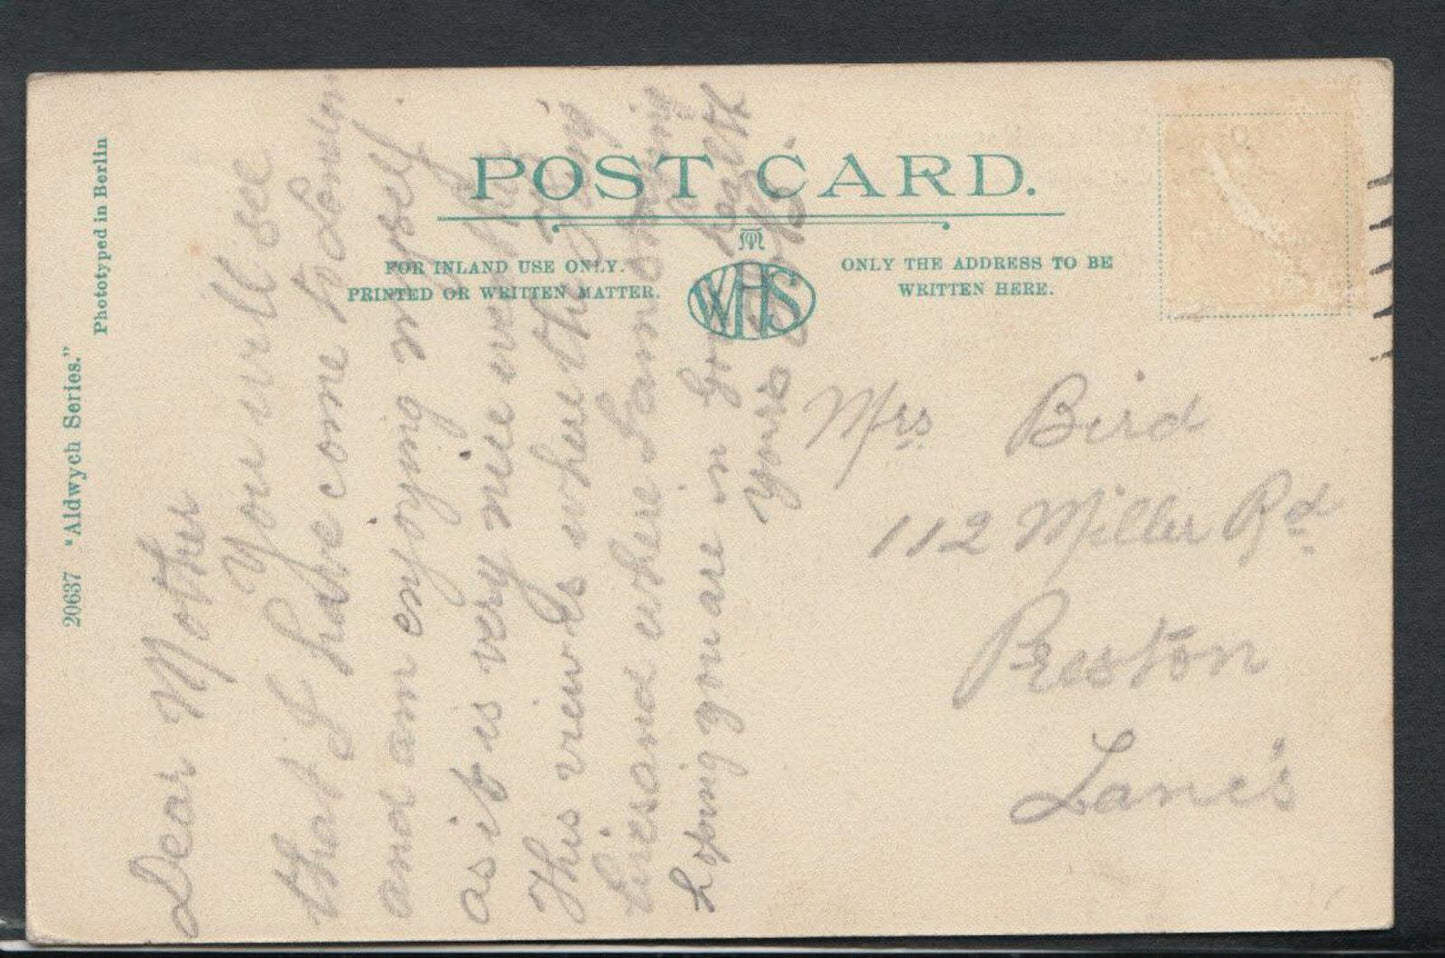 POST CARD.
FOR INLAND USE ONLY.
PRINTED OR WRITTEN MATTER.
WHS
ONLY THE ADDRESS TO BE
WRITTEN HERE.
20637 "Aldwych Series."
Photo­typed in Berlin
Dear Mother
You will see
that I have come to London
and am enjoying myself
as it is very nice over here
This view is where the King
lives and where I am
Hoping you are in good health
Yours
Mrs Bird
112 Miller Rd
Preston
Lanc's